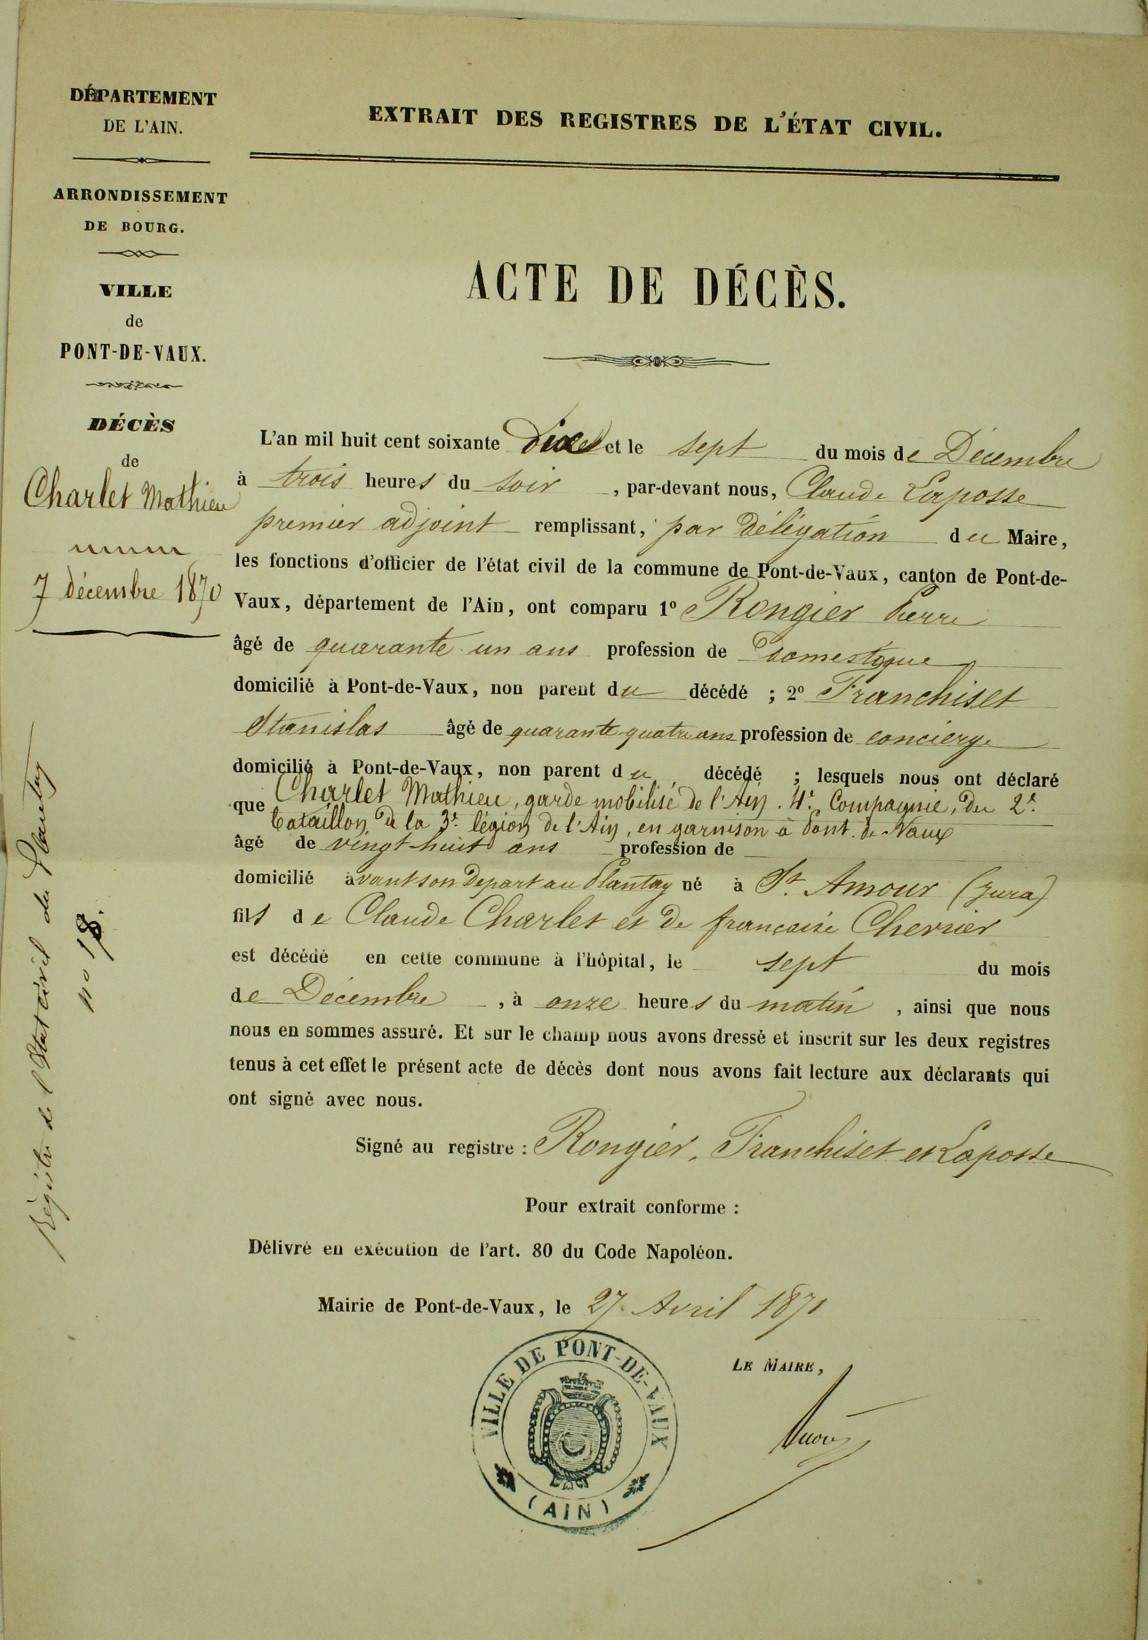 DÉPARTEMENT
DE L'AIN.
ARRONDISSEMENT
DE BOURG.
VILLE
de
PONT-DE-VAUX.
DÉCÈS
de
Charlet Mathieu
7 décembre 1870
Registre de l'Etat civil du Plantay
no 18.
EXTRAIT DES REGISTRES DE L'ÉTAT CIVIL.
ACTE DE DÉCÈS.
L'an mil huit cent soixante Dix et le sept du mois de Décembre
à trois heures du soir , par-devant nous, Claude Laposse
premier adjoint remplissant, par délégation du Maire,
les fonctions d'officier de l'état civil de la commune de Pont-de-Vaux, canton de Pont-de-
Vaux, département de l'Ain, ont comparu 1º Rongier Pierre
âgé de quarante un ans profession de Domestique
domicilié à Pont-de-Vaux, non parent du décédé ; 2º Franchiset
Stanislas âgé de quarante quatre ans profession de concierge
domicilié à Pont-de-Vaux, non parent du décédé ; lesquels nous ont déclaré
que Charlet Mathieu, garde mobilisé de l'Ain. 4e. Compagnie, du 2e.
bataillon, de la 3e. légion de l'Ain, en garnison à Pont-de-Vaux
âgé de vingt-huit ans profession de
domicilié avant son départ au Plantay né à St. Amour (Jura)
fils de Claude Charlet et de françoise Chevrier
est décédé en cette commune à l'hôpital, le sept du mois
de Décembre , à onze heures du matin , ainsi que nous
nous en sommes assuré. Et sur le champ nous avons dressé et inscrit sur les deux registres
tenus à cet effet le présent acte de décès dont nous avons fait lecture aux déclarants qui
ont signé avec nous.
Signé au registre : Rongier, Franchiset et Laposse
Pour extrait conforme :
Délivré en exécution de l'art. 80 du Code Napoléon.
Mairie de Pont-de-Vaux, le 27 Avril 1871
LE MAIRE,
VILLE DE PONT-DE-VAUX
(AIN)